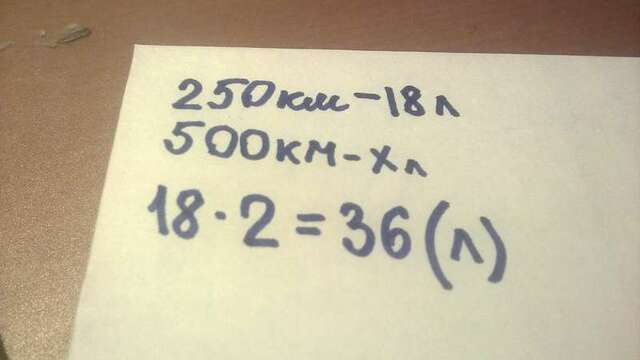 250км-18л
500км-Хл
18·2=36(л)